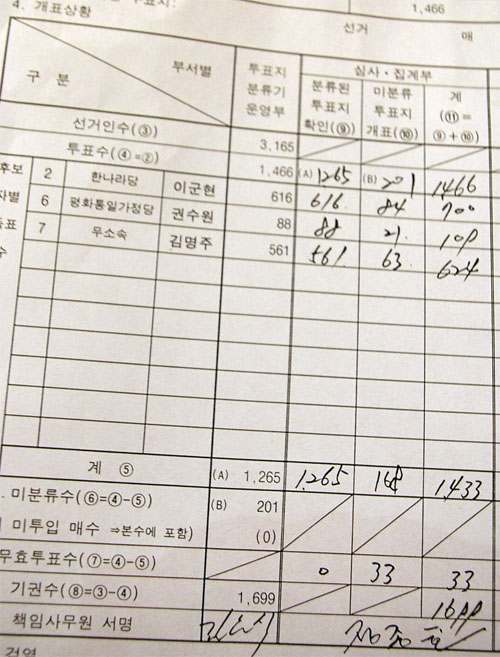 4. 개표상황
1,466
선거
매
구 분
부서별
투표지
분류기
운영부
심사·집계부
분류된
투표지
확인(⑨)
미분류
투표지
개표(⑩)
계
(⑪=
⑨+⑩)
선거인수(③)
3,165
투표수(④=②)
1,466
(A) 1265
(B) 201
1466
후보
자별
득표
수
2 한나라당 이군현 616 616 84 700
6 평화통일가정당 권수원 88 88 21 109
7 무소속 김명주 561 561 63 624
계 ⑤ (A) 1,265 1,265 168 1,433
미분류수(⑥=④-⑤) (B) 201
미투입 매수 ⇒본수에 포함) (0)
무효투표수(⑦=④-⑤) 0 33 33
기권수(⑧=③-④) 1,699 1699
책임사무원 서명